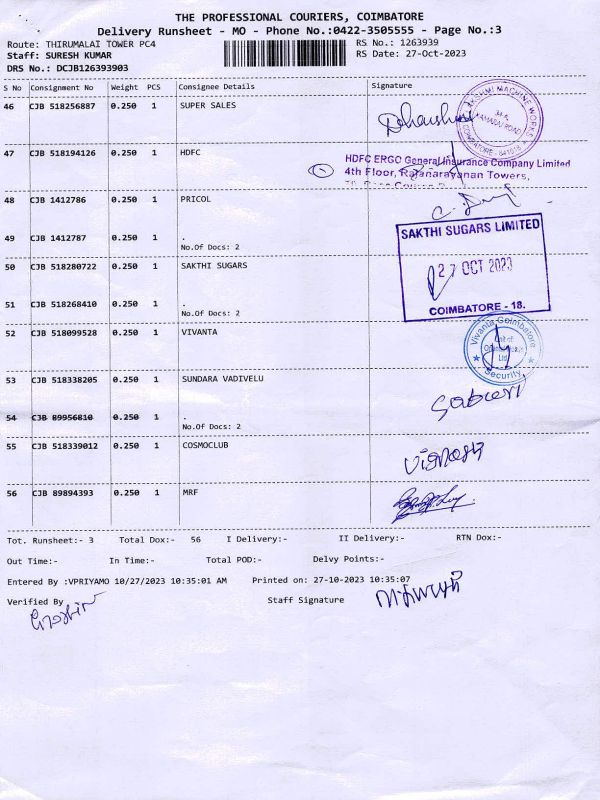 THE PROFESSIONAL COURIERS, COIMBATORE
Delivery Runsheet - MO - Phone No.:0422-3505555 - Page No.:3
Route: THIRUMALAI TOWER PC4 RS No.: 1263939
Staff: SURESH KUMAR RS Date: 27-Oct-2023
DRS No.: DCJB126393903
S No Consignment No Weight PCS Consignee Details Signature
46 CJB 518256887 0.250 1 SUPER SALES
47 CJB 518194126 0.250 1 HDFC
HDFC ERGO General Insurance Company Limited
4th Floor, Rajanarayanan Towers,
48 CJB 1412786 0.250 1 PRICOL
49 CJB 1412787 0.250 1 .
No.Of Docs: 2
SAKTHI SUGARS LIMITED
27 OCT 2023
COIMBATORE - 18.
50 CJB 518280722 0.250 1 SAKTHI SUGARS
51 CJB 518268410 0.250 1 .
No.Of Docs: 2
52 CJB 518099528 0.250 1 VIVANTA
Vivanta Coimbatore
Security
53 CJB 518338205 0.250 1 SUNDARA VADIVELU
54 CJB 89956810 0.250 1 .
No.Of Docs: 2
55 CJB 518339012 0.250 1 COSMOCLUB
56 CJB 89894393 0.250 1 MRF
Tot. Runsheet:- 3 Total Dox:- 56 I Delivery:- II Delivery:- RTN Dox:-
Out Time:- In Time:- Total POD:- Delvy Points:-
Entered By :VPRIYAMO 10/27/2023 10:35:01 AM Printed on: 27-10-2023 10:35:07
Verified By Staff Signature